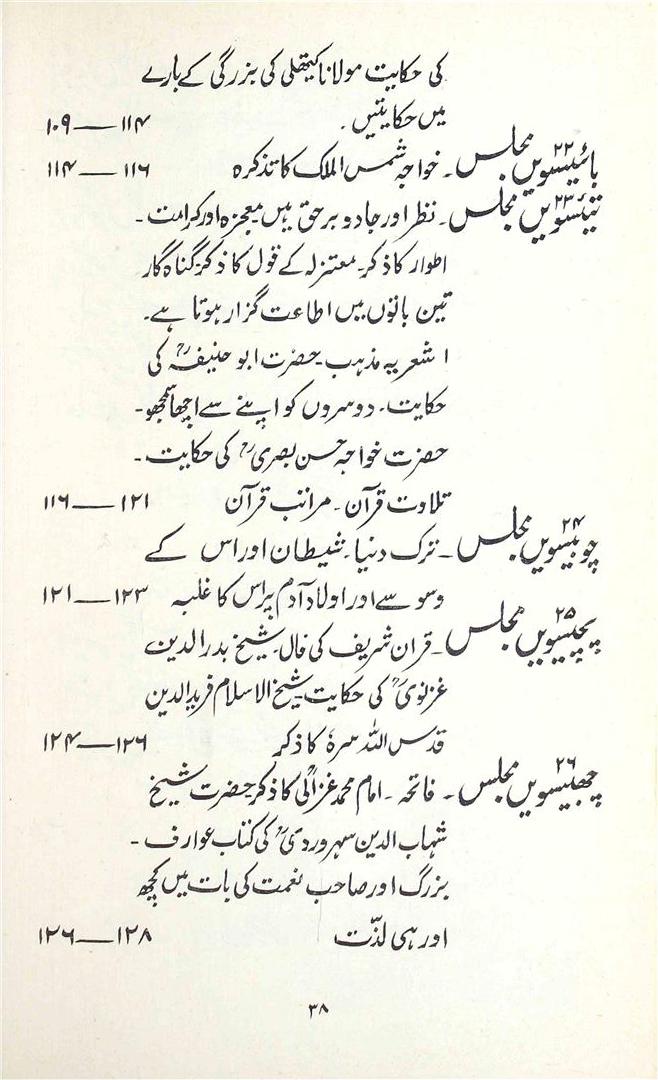 کی حکایت مولانا کیتھلی کی بزرگی کے بارے
میں حکایتیں۔ ۱۱۴—۱۰۹
بائیسویں ۲۲ مجلس۔ خواجہ شمس الملک کا تذکرہ ۱۱۶—۱۱۴
تیئسویں ۲۳ مجلس۔ نظر اور جادو برحق ہیں معجزہ اور کرامت۔
اطوار کا ذکر۔ معتزلہ کے قول کا ذکر۔ گناہ گار
تین باتوں میں اطاعت گزار ہوتا ہے۔
اشعریہ مذہب۔ حضرت ابو حنیفہؒ کی
حکایت۔ دوسروں کو اپنے سے اچھا سمجھو۔
حضرت خواجہ حسن بصریؒ کی حکایت۔
تلاوت قرآن۔ مراتب قرآن ۱۲۱—۱۱۶
چوبیسویں ۲۴ مجلس۔ ترک دنیا۔ شیطان اور اس کے
وسوسے اور اولاد آدم پر اس کا غلبہ ۱۲۳—۱۲۱
پچیسویں ۲۵ مجلس۔ قرآن شریف کی فال۔ شیخ بدر الدین
غزنویؒ کی حکایت۔ شیخ الاسلام فرید الدین
قدس اللہ سرہٗ کا ذکر ۱۲۶—۱۲۴
چھبیسویں ۲۶ مجلس۔ فاتحہ۔ امام محمد غزالیؒ کا ذکر۔ حضرت شیخ
شہاب الدین سہروردیؒ کی کتاب عوارف۔
بزرگ اور صاحب نعمت کی بات میں کچھ
اور ہی لذّت ۱۲۸—۱۲۶
۳۸